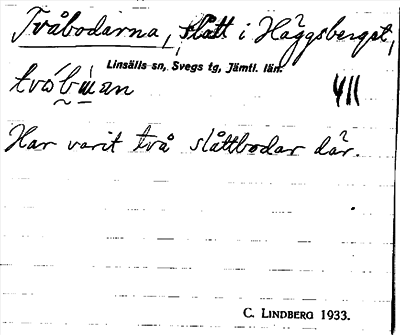 Tvåbodarna, slått i Häggsberget,
Linsälls sn, Svegs tg, Jämtl. län.
Har varit två slåttbodar där.
C. LINDBERG 1933.